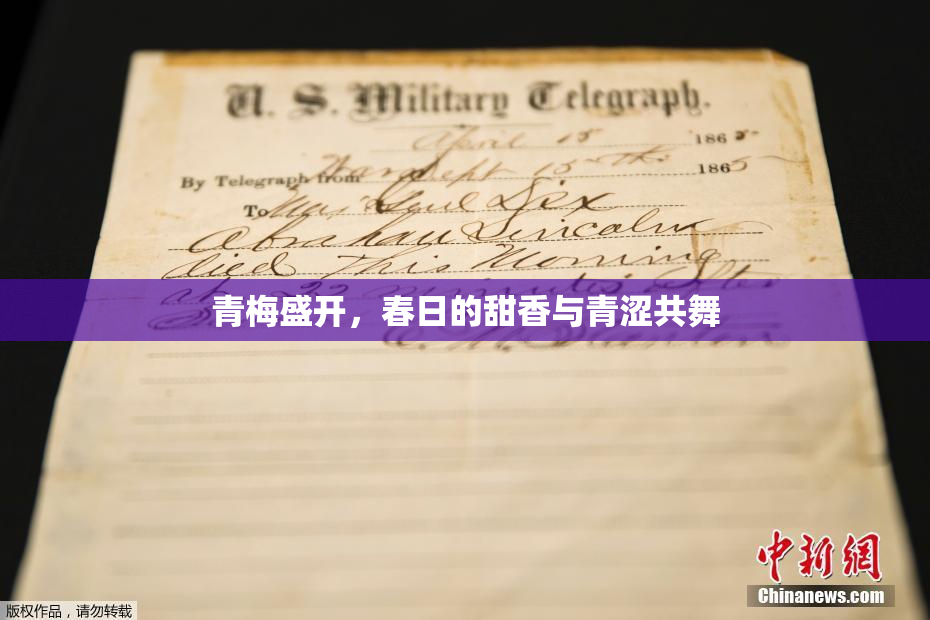 U. S. Military Telegraph.
April 15 1865
By Telegraph from War Dept 15th 1865
To Maj Genl Dix
Abraham Lincoln
died This Morning
at 22 minutes after
青梅盛开，春日的甜香与青涩共舞
中新網
Chinanews.com
版权作品，请勿转载